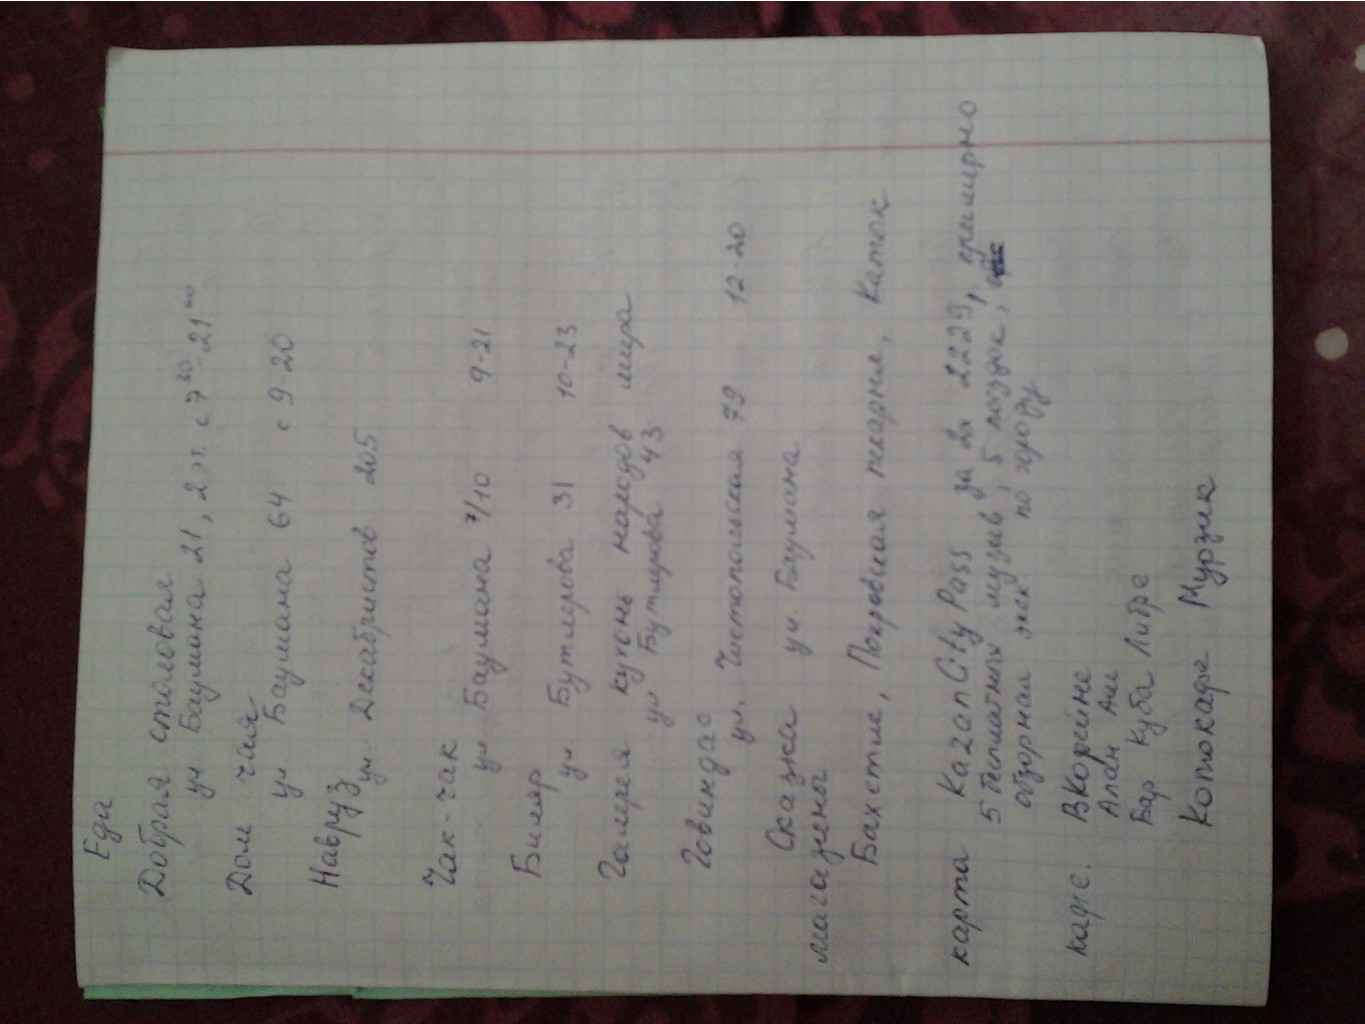 Еда
Добрая столовая
ул Баумана 21, 2 эт. с 7³⁰-21⁰⁰
Дом чая
ул Баумана 64 с 9-20
Навруз
ул Декабристов 205
Чак-чак
ул Баумана 7/10 9-21
Биляр
ул Бутлерова 31 10-23
Галерея кухонь народов мира
ул Бутлерова 43
Говиндас
ул. Чистопольская 79 12-20
Сказка ул. Баумана
магазины
Бахетле, Покровская пекарня, Каток
карта KazanCityPass за 2д 2229р, примерно
5 бесплатных музеев, 5 поездок,
обзорная экск по городу
кафе. ВКофейне
Алан Аш
Бар Куба Либре
Котокафе Мурзик